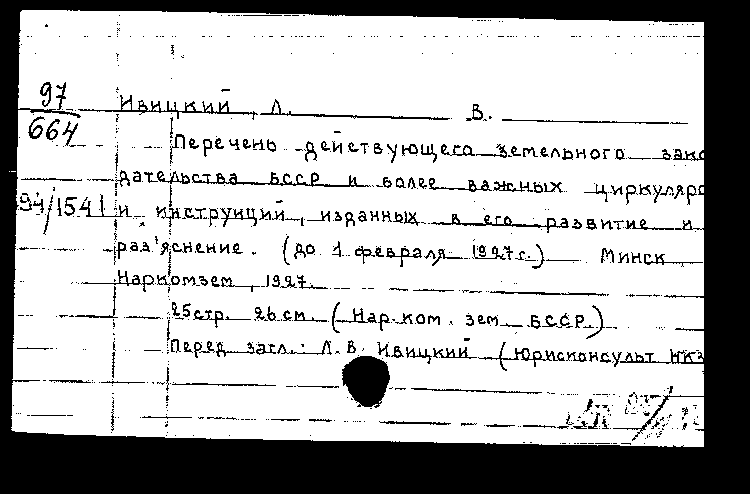 97
664
94/1541
Ивицкий, Л. В.
Перечень действующего земельного зако
дательства БССР и более важных циркуляро
и инструкций, изданных в его развитие и
раз'яснение. (до 1 февраля 1927г.) Минск,
Наркомзем, 1927.
25стр. 26см. (Нар.ком. зем. БССР)
Перед загл.: Л.В. Ивицкий (юрисконсульт НКЗ